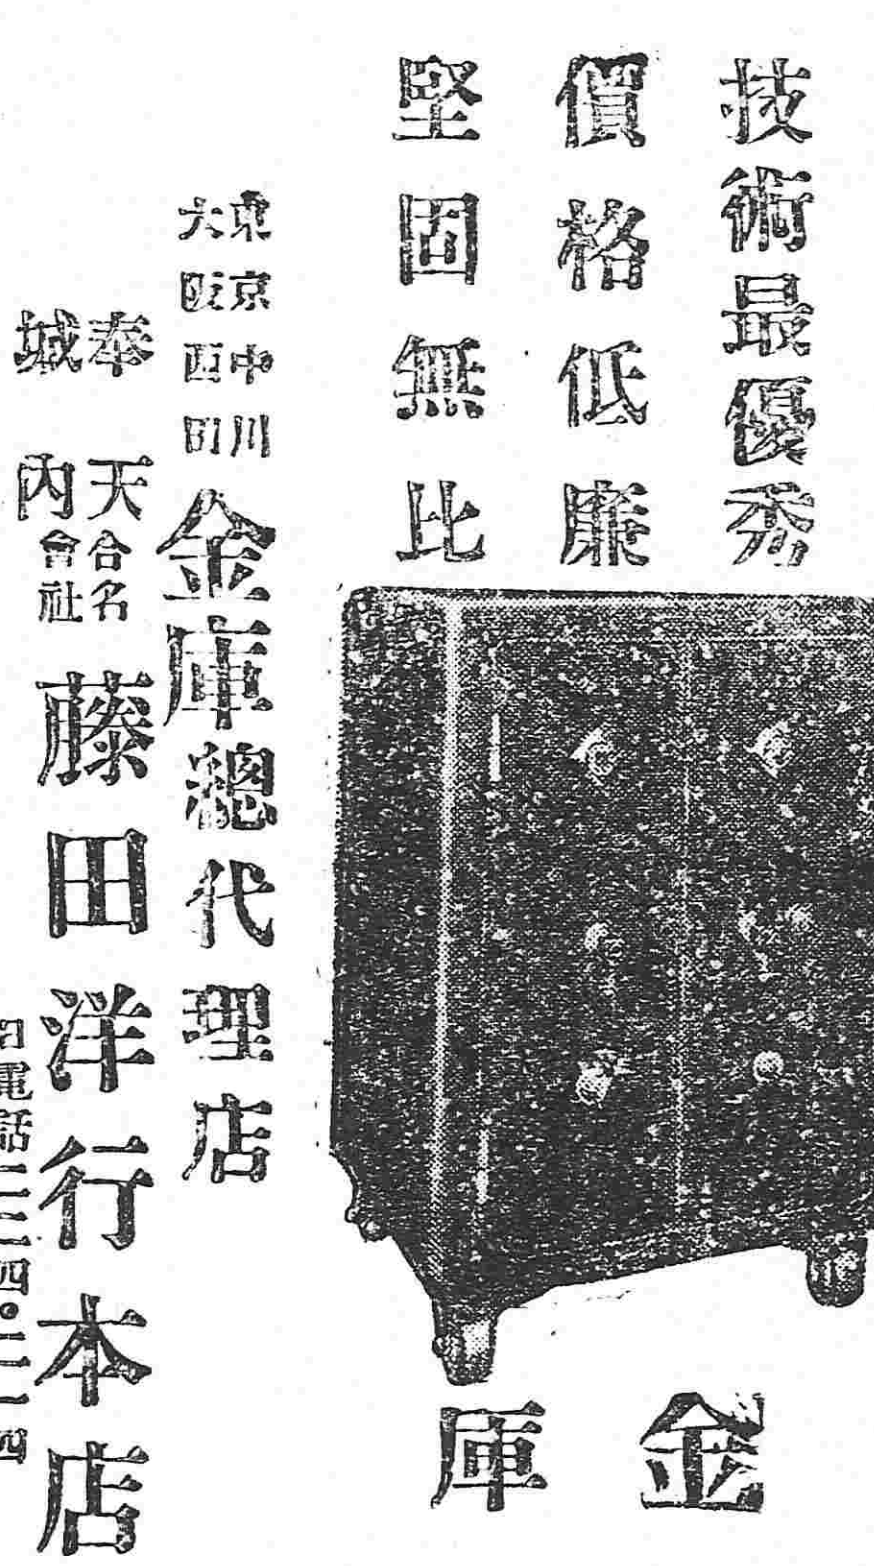 技術最優秀
價格低廉
堅固無比
金庫
東京中川
大阪西田
金庫總代理店
奉天
城內
合名
會社
藤田洋行本店
電話二二四〇二一四